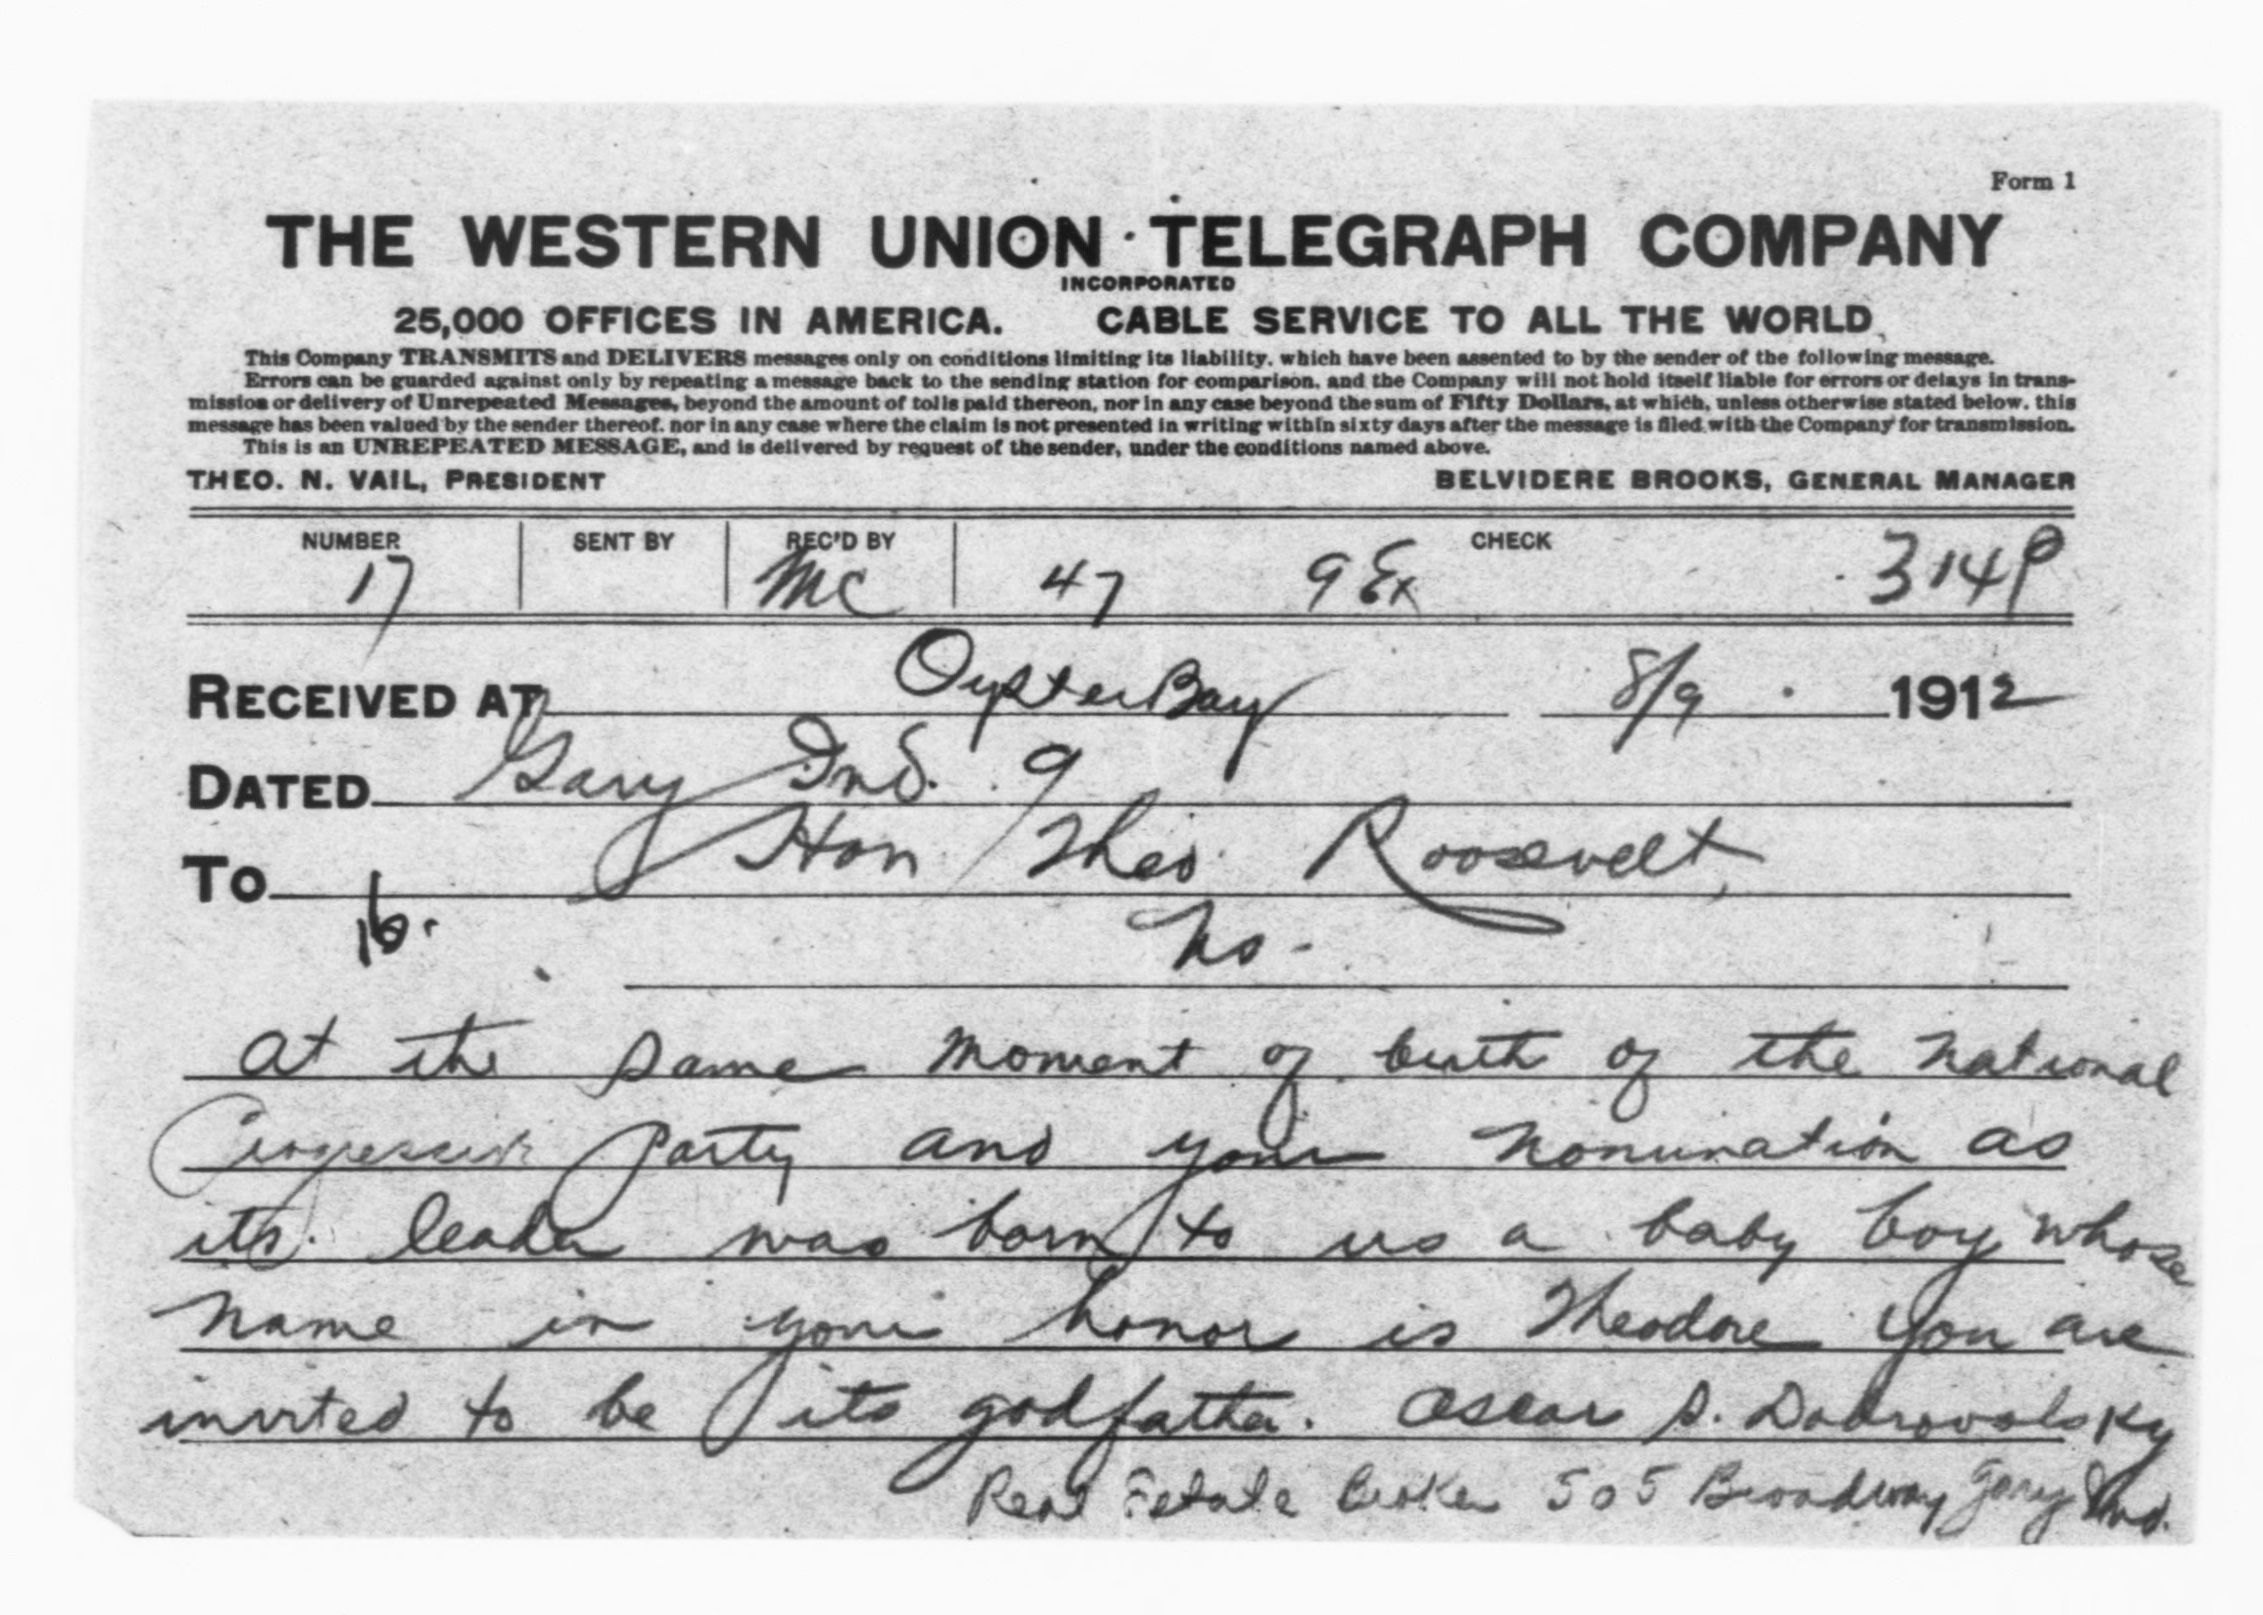 Form 1
THE WESTERN UNION TELEGRAPH COMPANY
INCORPORATED
25,000 OFFICES IN AMERICA. CABLE SERVICE TO ALL THE WORLD
This Company TRANSMITS and DELIVERS messages only on conditions limiting its liability, which have been assented to by the sender of the following message.
Errors can be guarded against only by repeating a message back to the sending station for comparison, and the Company will not hold itself liable for errors or delays in trans-
mission or delivery of Unrepeated Messages, beyond the amount of tolls paid thereon, nor in any case beyond the sum of Fifty Dollars, at which, unless otherwise stated below, this
message has been valued by the sender thereof, nor in any case where the claim is not presented in writing within sixty days after the message is filed with the Company for transmission.
This is an UNREPEATED MESSAGE, and is delivered by request of the sender, under the conditions named above.
THEO. N. VAIL, PRESIDENT BELVIDERE BROOKS, GENERAL MANAGER
NUMBER SENT BY REC'D BY CHECK
17 MC 47 9 Ex 314P
RECEIVED AT Oyster Bay 8/9 1912
DATED Gary Ind. 9
TO Hon Theo Roosevelt,
16. No-
at the same moment of birth of the National
Progressive Party and your nomination as
its leader was born to us a baby boy whose
name in your honor is Theodore you are
invited to be its godfather. Oscar S. Dobrovolsky
Real Estate Broker 505 Broadway Gary Ind.